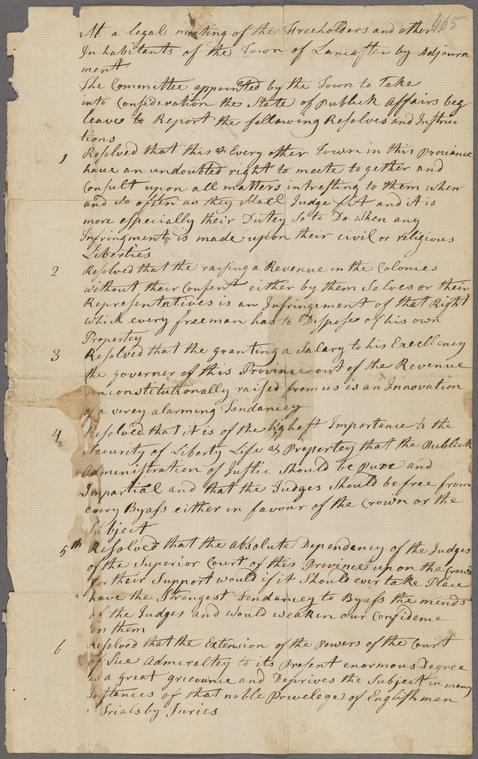 465
At a legal meeting of the Freeholders and other
Inhabitants of the Town of Lancaster by Adjourn
ment
The Committee appointed by the Town to take
into Consideration the State of Publick Affairs beg
leave to Report the following Resolves and Instruc
tions
1 Resolved that this & Every other Town in this Proviance
have an undoubted right to meete together and
Consult upon all matters intresting to them when
and so often as they Shall Judge fit and it is
more especially their Dutey So to Do when any
Infringment is made upon their civil or religious
Liberties
2 Resolved that the raising a Revenue in the Colonies
without their Consent either by them Selves or their
Representatives is an Infringement of that Right
which every freeman has to Dispose of his own
Propertey
3 Resolved that the granting a Salary to his Excellency
the governor of this Province out of the Revenue
unconstitutionally raised from us is an Innovation
of a verey alarming Tendancey
4 Resolved that it is of the highest Importance to the
Security of Liberty Life & Propertey that the Publick
Administration of Justic Should be Pure and
Impartial and that the Judges Should be free from
every Byass either in favour of the Crown or the
Subject
5th Resolved that the absolute Dependancy of the Judges
of the Superior Court of this Province upon the Crown
for their Support would if it Should ever take Place
have the Strongest Tendancey to Byass the minds
of the Judges and would weaken our Confidence
in them
6 Resolved that the Extension of the Powers of the Court
of Admiraltey to its Present enormous degree
is a great grievance and Deprives the Subject in many
instances of that noble Privelege of Englishmen
Trials by Juries